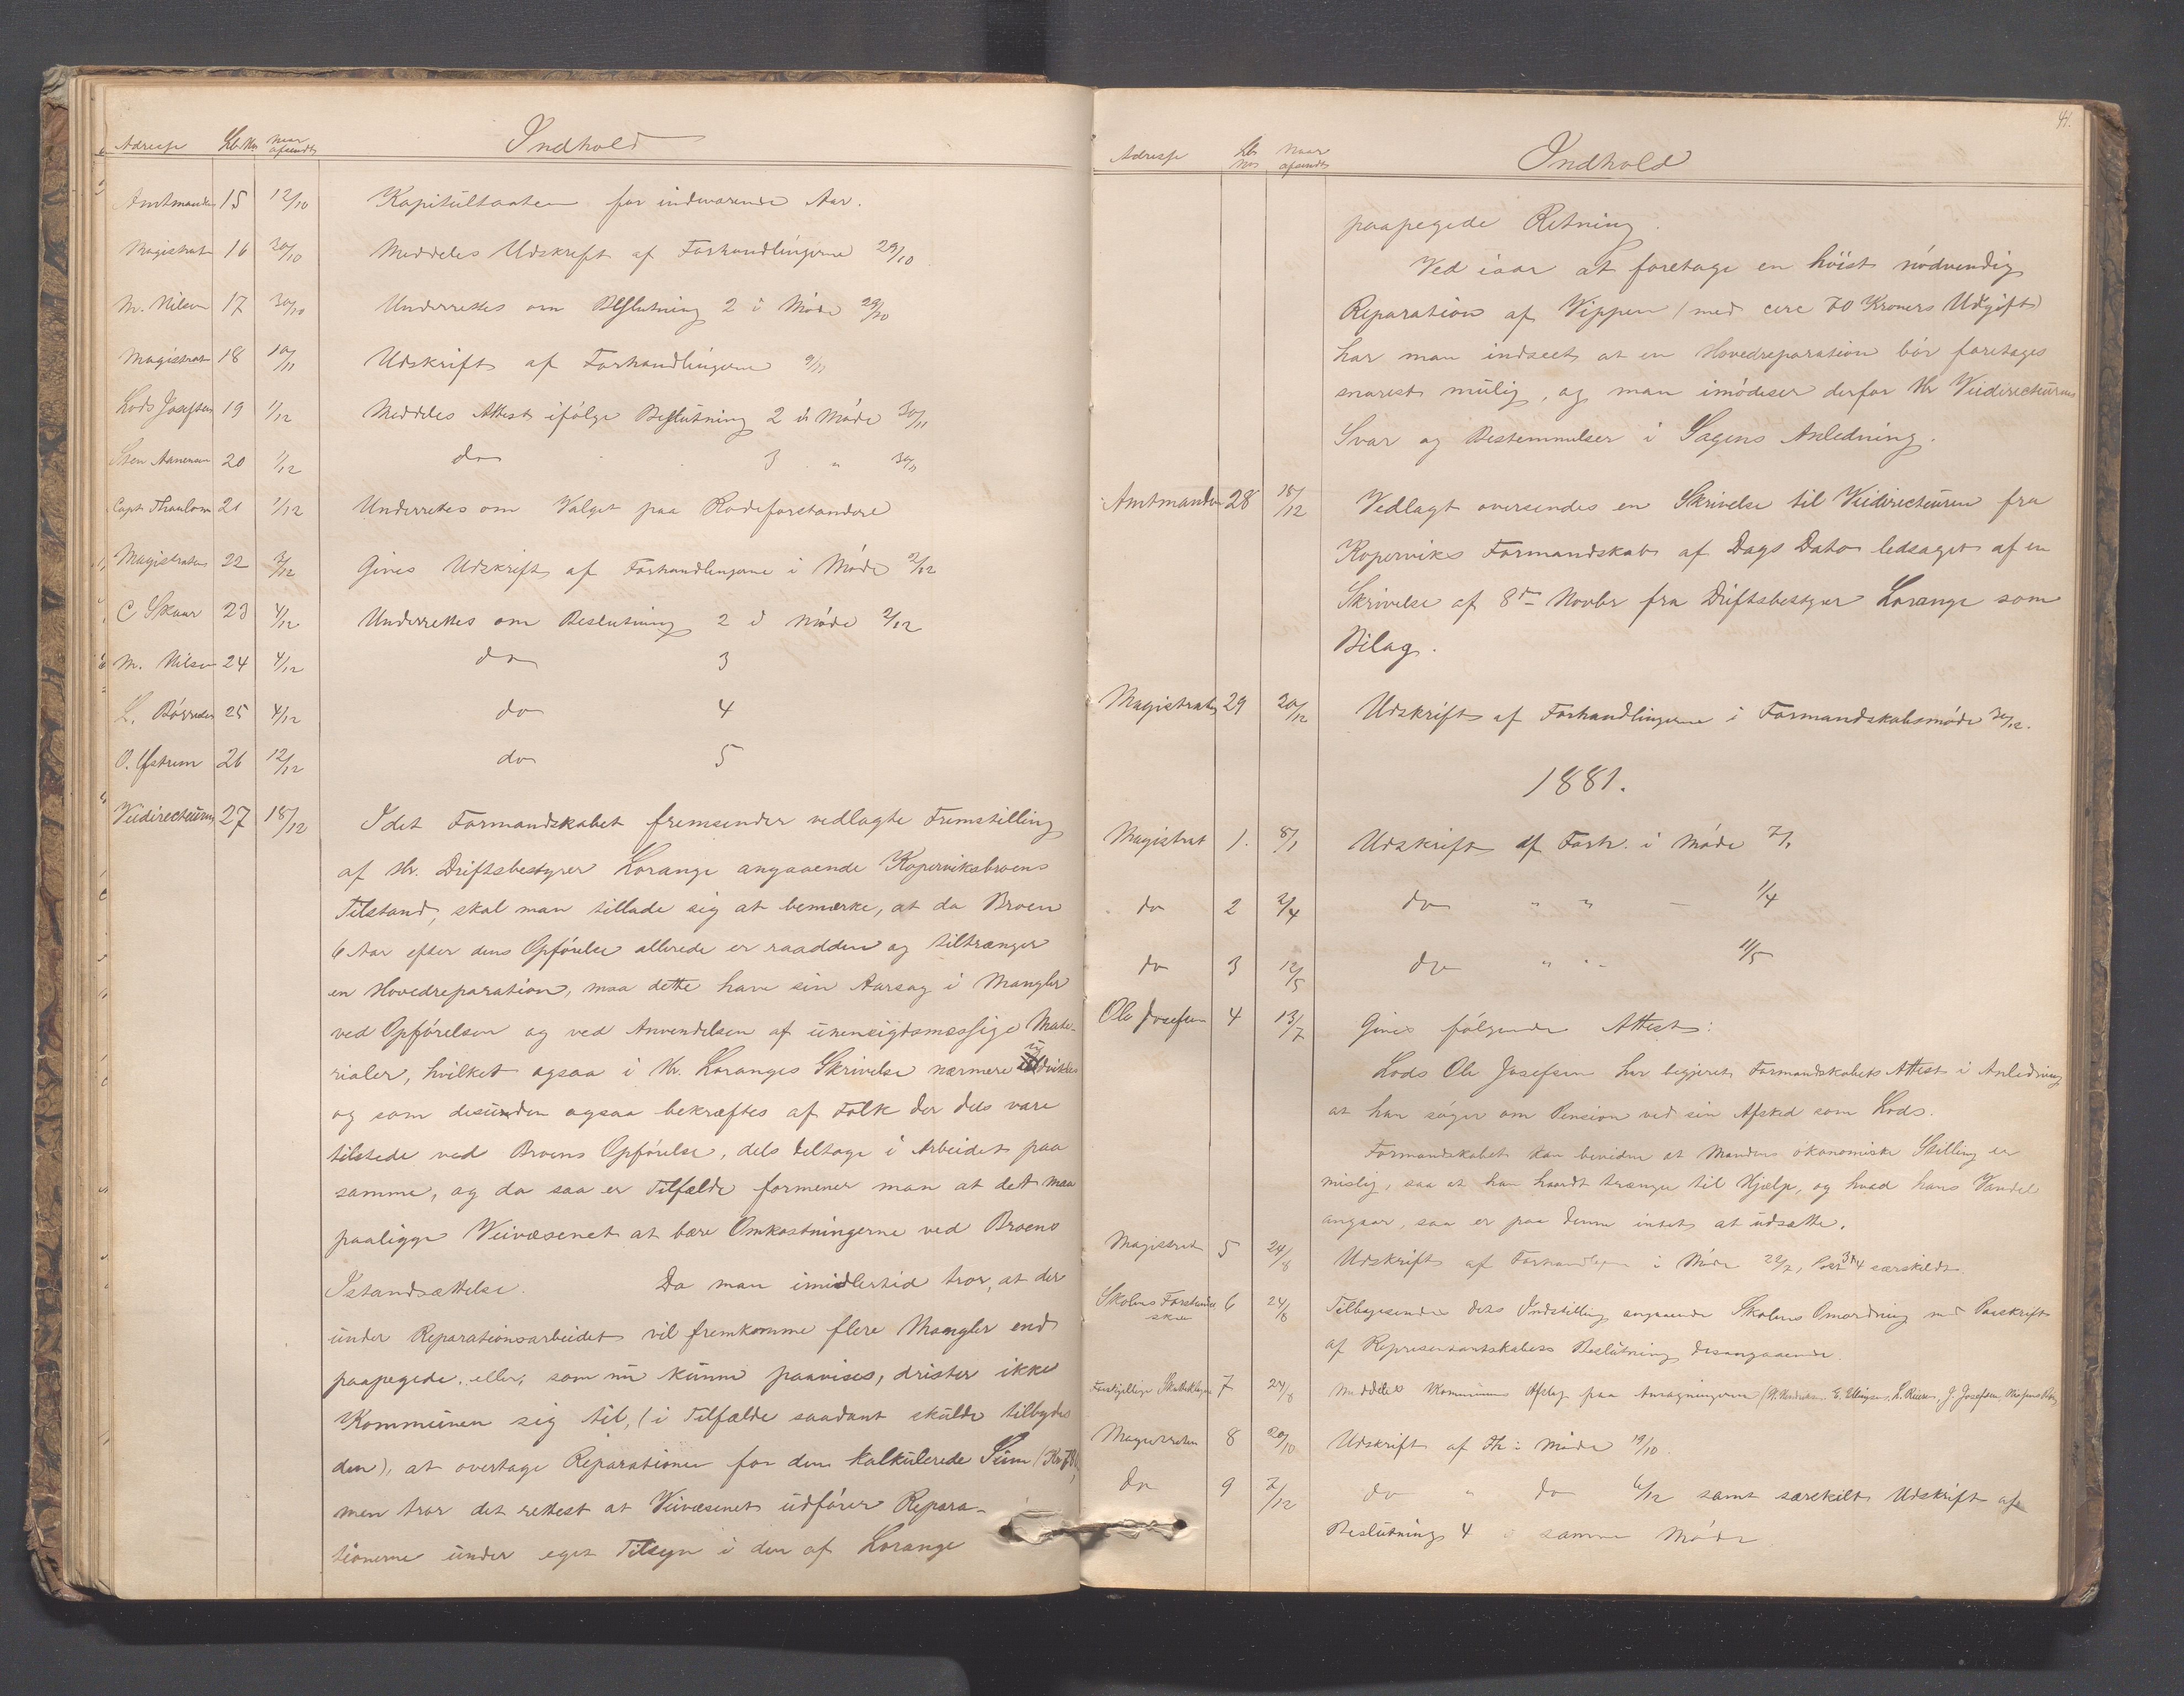 Adresse Lb. No. Naar afsendt Indhold
Amtmanden 15 12/10 Kapitültaxten for indeværende Aar.
Magistrat 16 30/10 Meddeles Udskrift af Forhandlingerne 29/10
M. Nilsen 17 30/10 Underrettes om Beslutning 2 i Møde 29/10
Magistrat 18 10/11 Udskrift af Forhandlingerne 9/11
Lods Josefsen 19 1/12 Meddeles Attest ifølge Beslutning 2 i Møde 30/11
Sten Aanensen 20 1/12 do 3 " 30/11
Capt. Thaulow 21 1/12 Underrettes om Valget paa Rodeforstandere
Magistraten 22 3/12 Gives Udskrift af Forhandlingerne i Møde 2/12
C Skaar 23 4/12 Underrettes om Beslutning 2 i Møde 2/12
M. Nilsen 24 4/12 do 3
L. 25 4/12 do 4
O. Østrem 26 12/12 do 5
Veidirecteuren 27 18/12 Idet Formandskabet fremsender vedlagte Fremstilling
af Hr. Driftsbestyrer Lorange angaaende Koperviksbroens
Tilstand, skal man tillade sig at bemærke, at da Broen
6 Aar efter dens Opførelse allerede er raadden og tiltrænger
en Hovedreparation, maa dette have sin Aarsag i Mangler
ved Opførelsen og ved Anvendelsen af uhensigtsmæssige Mate-
rialer, hvilket ogsaa i Hr. Loranges Skrivelse nærmere udvikles
og som desuden ogsaa bekræftes af Folk der dels vare
tilstede ved Broens Opførelse, dels deltage i Arbeidet paa
samme, og da saa er Tilfælde formener man at det maa
paaligge Veivæsenet at bære Omkostningerne ved Broens
Istandsættelse. Da man imidlertid tror, at der
under Reparationsarbeidet vil fremkomme flere Mangler end
paapegede, eller, som nu kunne paavises, drister ikke
Kommunen sig til, (i Tilfælde saadant skulde tilbydes
den), at overtage Reparationen for den kalkulerede Sum
men tror det rettest at Veivæsenet udfører Repara-
tionerne under eget Tilsyn i den af Lorange
41.
Adresse Lb. No. Naar afsendt Indhold
paapegede Retning.
Ved iaar at foretage en høist nødvendig
Reparation af Vippen (med circ 70 Kroners Udgift)
har man indseet at en Hovedreparation bør foretages
snarest mulig, og man imødeser derfor Hr Veidirecteurens
Svar og Bestemmelser i Sagens Anledning.
Amtmanden 28 18/12 Vedlagt oversendes en Skrivelse til Veidirecteuren fra
Koperviks Formandskab af Dags Dato ledsaget af en
Skrivelse af 8de Novbr fra Driftsbestyrer Lorange som
Bilag.
Magistrat 29 30/12 Udskrift af Forhandlingerne i Formandskabsmøde 30/12.
1881.
Magistrat 1. 8/1 Udskrift af Forh. i Møde 7/1
do 2 2/4 do " " — 1/4
do 3 12/5 do " " - 11/5
Ole Josefsen 4 13/7 Gives følgende Attest:
Lods Ole Josefsen har begjæret Formandskabets Attest i Anledning
at han søger om Pension ved sin Afsked som Lods.
Formandskabet kan bevidne at Mandens økonomiske Stilling er
mislig, saa at han haardt trænger til Hjælp, og hvad hans Vandel
angaar, saa er paa denne intet at udsætte.
Magistrat 5 24/8 Udskrift af Forhandlingerne i Møde 22/7, Post 3 & 4 særskildt.
Skolens Forstanderskab 6 24/8 Tilbagesendes dets Indstilling angaaende Skolens Omordning med Paaskrift
af Repræsentantskabets Beslutning desangaaende.
Forskjellige Skatteklagere 7 24/8 Meddeles Kommunens Afslag paa Ansøgningerne
Magistraten 8 20/10 Udskrift af Fh i Møde 19/10.
do 9 7/12 do " do 6/12 samt særskilt Udskrift af
Beslutning 4 i samme Møde